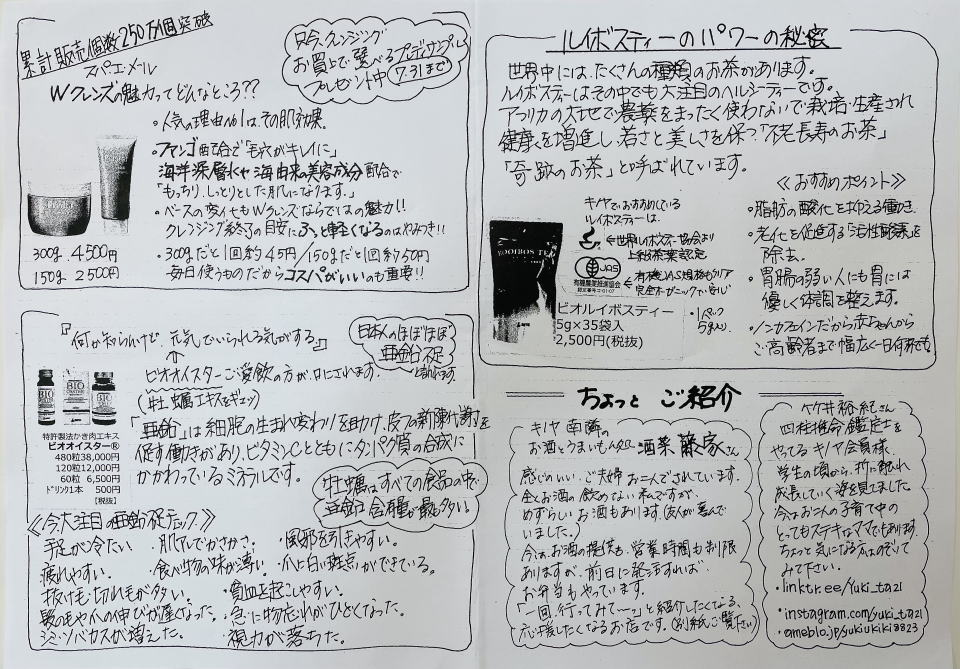 累計販売個数250万個突破
スパ・エ・メール
Wクレンズの魅力ってどんなところ??
只今、クレンジング
お買上で選べるプレディサンプル
プレゼント中 7.31まで
・人気の理由No1は、その肌効果。
・ファンゴ配合で「毛穴がキレイに」
海洋深層水や海由来の美容成分配合で
「もっちり、しっとりとした肌になります。」
・ベースの変化もWクレンズならではの魅力!!
クレンジング終了の目安にふっと軽くなるのはやみつき!!
300g 4500円
150g 2500円
・300gだと1回約45円/150gだと1回約50円
毎日使うものだからコスパがいいのも重要!!
『何か知らんけど、元気でいられる気がする』
↑
ビオオイスターご愛飲の方が口にされます。
(牡蠣エキスをギュッ)
日本人のほぼほぼ
亜鉛不足
と言われてます。
「亜鉛」は細胞の生れ変わりを助け、皮フの新陳代謝を
促す働きがあり、ビタミンCとともにタンパク質の合成に
かかわっているミネラルです。
特許製法かき肉エキス
ビオオイスター®
480粒38,000円
120粒12,000円
60粒 6,500円
ドリンク1本 500円
[税抜]
牡蠣はすべての食品の中で
亜鉛含有量が最も多い。
≪今大注目の亜鉛不足チェック≫
・手足が冷たい ・肌アレでかさかさ。 ・風邪を引きやすい。
・疲れやすい。 ・食べ物の味が薄い ・爪に白い斑点ができている。
・抜け毛・切れ毛が多い。 ・貧血を起こしやすい。
・髪の毛やつめの伸びが遅くなった。 ・急に物忘れがひどくなった。
・シミ・ソバカスが増えた。 ・視力が落ちた。
ルイボスティーのパワーの秘密
世界中には、たくさんの種類のお茶があります。
ルイボスティーはその中でも大注目のヘルシーティーです。
アフリカの大地で農薬をまったく使わないで栽培・生産され
健康を増進し、若さと美しさを保つ「不老長寿のお茶」
「奇跡のお茶」と呼ばれています。
キヤでおすすめしている
ルイボスティーは、
←世界ルイボスティー協会より
上級茶葉認定
ROOIBOS TEA
JAS
←有機JAS規格もクリア
完全オーガニックで安心
ビオルイボスティー
5g×35袋入
2,500円(税抜)
・1パック
5g入り。
≪おすすめポイント≫
・脂肪の酸化を抑える働き。
・老化を促進する「活性酸素」を
除去。
・胃腸の弱い人にも胃には
優しく体調を整えます。
・ノンカフェインだから赤ちゃんから
ご高齢者まで幅広く一日何杯でも。
ちょっと ご紹介
キヤ南隣の
お酒とうまいもん処 酒菜 藤家さん
感じのいい、ご夫婦お二人でされています。
全くお酒の飲めない私ですが、
めずらしいお酒もあります。(友人が喜んで
いました。)
今は、お酒の提供も、営業時間も制限
ありますが、前日に電話すれば
お弁当もやっています。
「一回、行ってみて〜。」と紹介したくなる、
応援したくなるお店です。(別紙ご覧下さい)
竹井裕紀さん
四柱推命鑑定士を
やってるキヤ会員様。
学生の頃から、折に触れ
成長していく姿を見てました。
今はお二人の子育て中の
とってもステキなママでもあります。
ちょっと気になる方はのぞいて
みて下さい。
・linktr.ee/yuki_ta21
・instagram.com/yuki_ta21
・ameblo.jp/yukiukiki8823